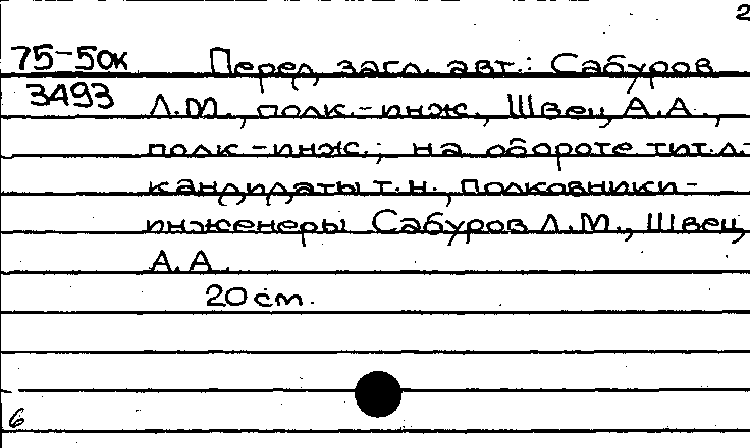 2
75-50к Перед загл. авт.: Сабуров
3493 Л.М., полк.-инж., Швец, А.А.,
полк-инж.; на обороте тит.л.-
кандидаты т.н., полковники-
инженеры Сабуров Л.М., Швец,
А.А.
20 см.
6